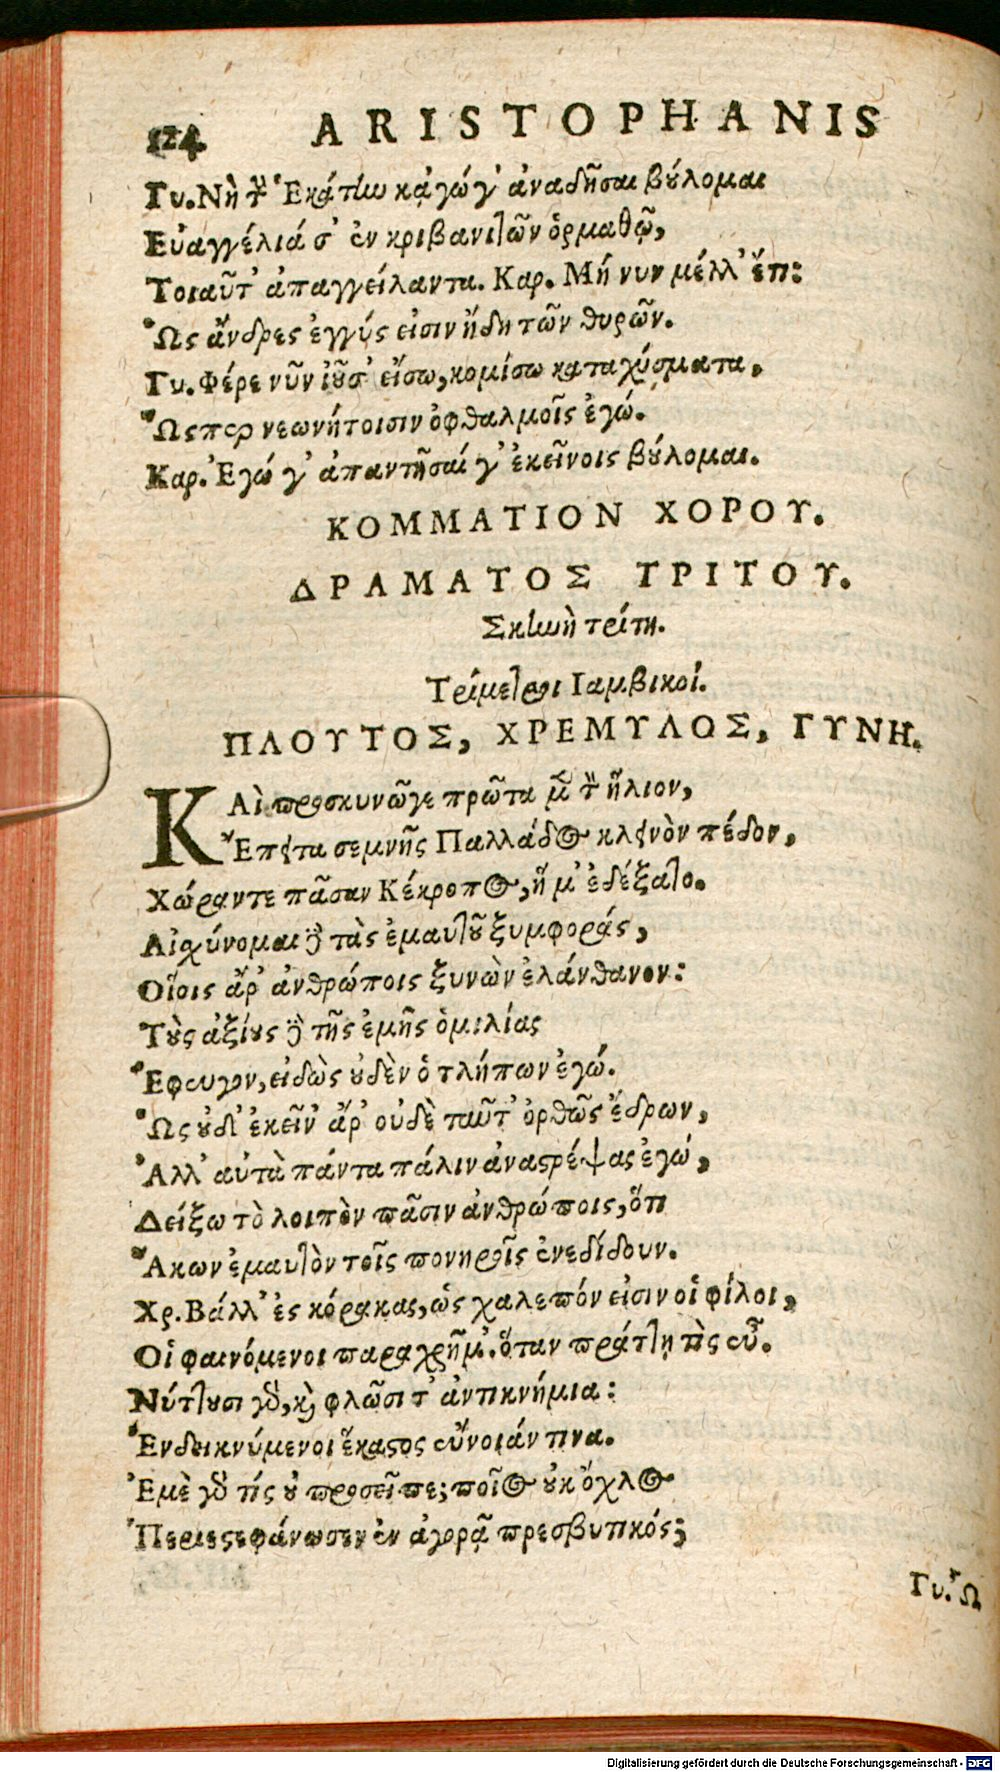 124 ARISTOPHANIS
Γυ. Νὴ τὴν Ἑκάτην κᾀγώ γ' ἀναδῆσαι βούλομαι
Εὐαγγέλιά σ' ἐν κριβανιτῶν ὁρμαθῷ,
Τοιαῦτ' ἀπαγγείλαντα. Καρ. Μή νυν μέλλ' ἔτι:
Ὡς ἄνδρες ἐγγύς εἰσιν ἤδη τῶν θυρῶν.
Γυ. Φέρε νῦν ἰοῦσ' εἴσω, κομίσω καταχύσματα,
Ὥσπερ νεωνήτοισιν ὀφθαλμοῖς ἐγώ.
Καρ. Ἐγώ γ' ἀπαντῆσαί γ' ἐκείνοις βούλομαι.
ΚΟΜΜΑΤΙΟΝ ΧΟΡΟΥ.
ΔΡΑΜΑΤΟΣ ΤΡΙΤΟΥ.
Σκηνὴ τρίτη.
Τρίμετροι Ιαμβικοί.
ΠΛΟΥΤΟΣ, ΧΡΕΜΥΛΟΣ, ΓΥΝΗ.
ΚΑὶ προσκυνῶγε πρῶτα μὲν τὸν ἥλιον,
Ἔπειτα σεμνῆς Παλλάδος κλεινὸν πέδον,
Χώραντε πᾶσαν Κέκροπος, ἥ μ' ἐδέξατο.
Αἰσχύνομαι δὲ τὰς ἐμαυτοῦ ξυμφοράς,
Οἵοις ἄρ' ἀνθρώποις ξυνὼν ἐλάνθανον:
Τοὺς ἀξίους δὲ τῆς ἐμῆς ὁμιλίας
Ἔφευγον, εἰδὼς οὐδὲν ὁ τλήπων ἐγώ.
Ὡς οὐδ' ἐκεῖν' ἄρ' οὐδὲ ταῦτ' ὀρθῶς ἔδρων,
Ἀλλ' αὐτὰ πάντα πάλιν ἀναστρέψας ἐγώ,
Δείξω τὸ λοιπὸν πᾶσιν ἀνθρώποις, ὅτι
Ἄκων ἐμαυτὸν τοῖς πονηροῖς ἐνεδίδουν.
Χρ. Βάλλ' ἐς κόρακας, ὡς χαλεπόν εἰσιν οἱ φίλοι,
Οἱ φαινόμενοι παραχρῆμ'. ὅταν πράττῃ τὶς εὖ.
Νύττουσι γὰρ, καὶ φλῶσι τ' ἀντικνήμια:
Ἐνδεικνύμενοι ἕκαστος εὔνοιάν τινα.
Ἐμὲ γὰρ τίς οὐ προσεῖπε; ποῖος οὐκ ὄχλος
Περιεστεφάνωσεν ἐν ἀγορᾷ πρεσβυτικός;
Γυ. Ὦ
Digitalisierung gefördert durch die Deutsche Forschungsgemeinschaft - DFG